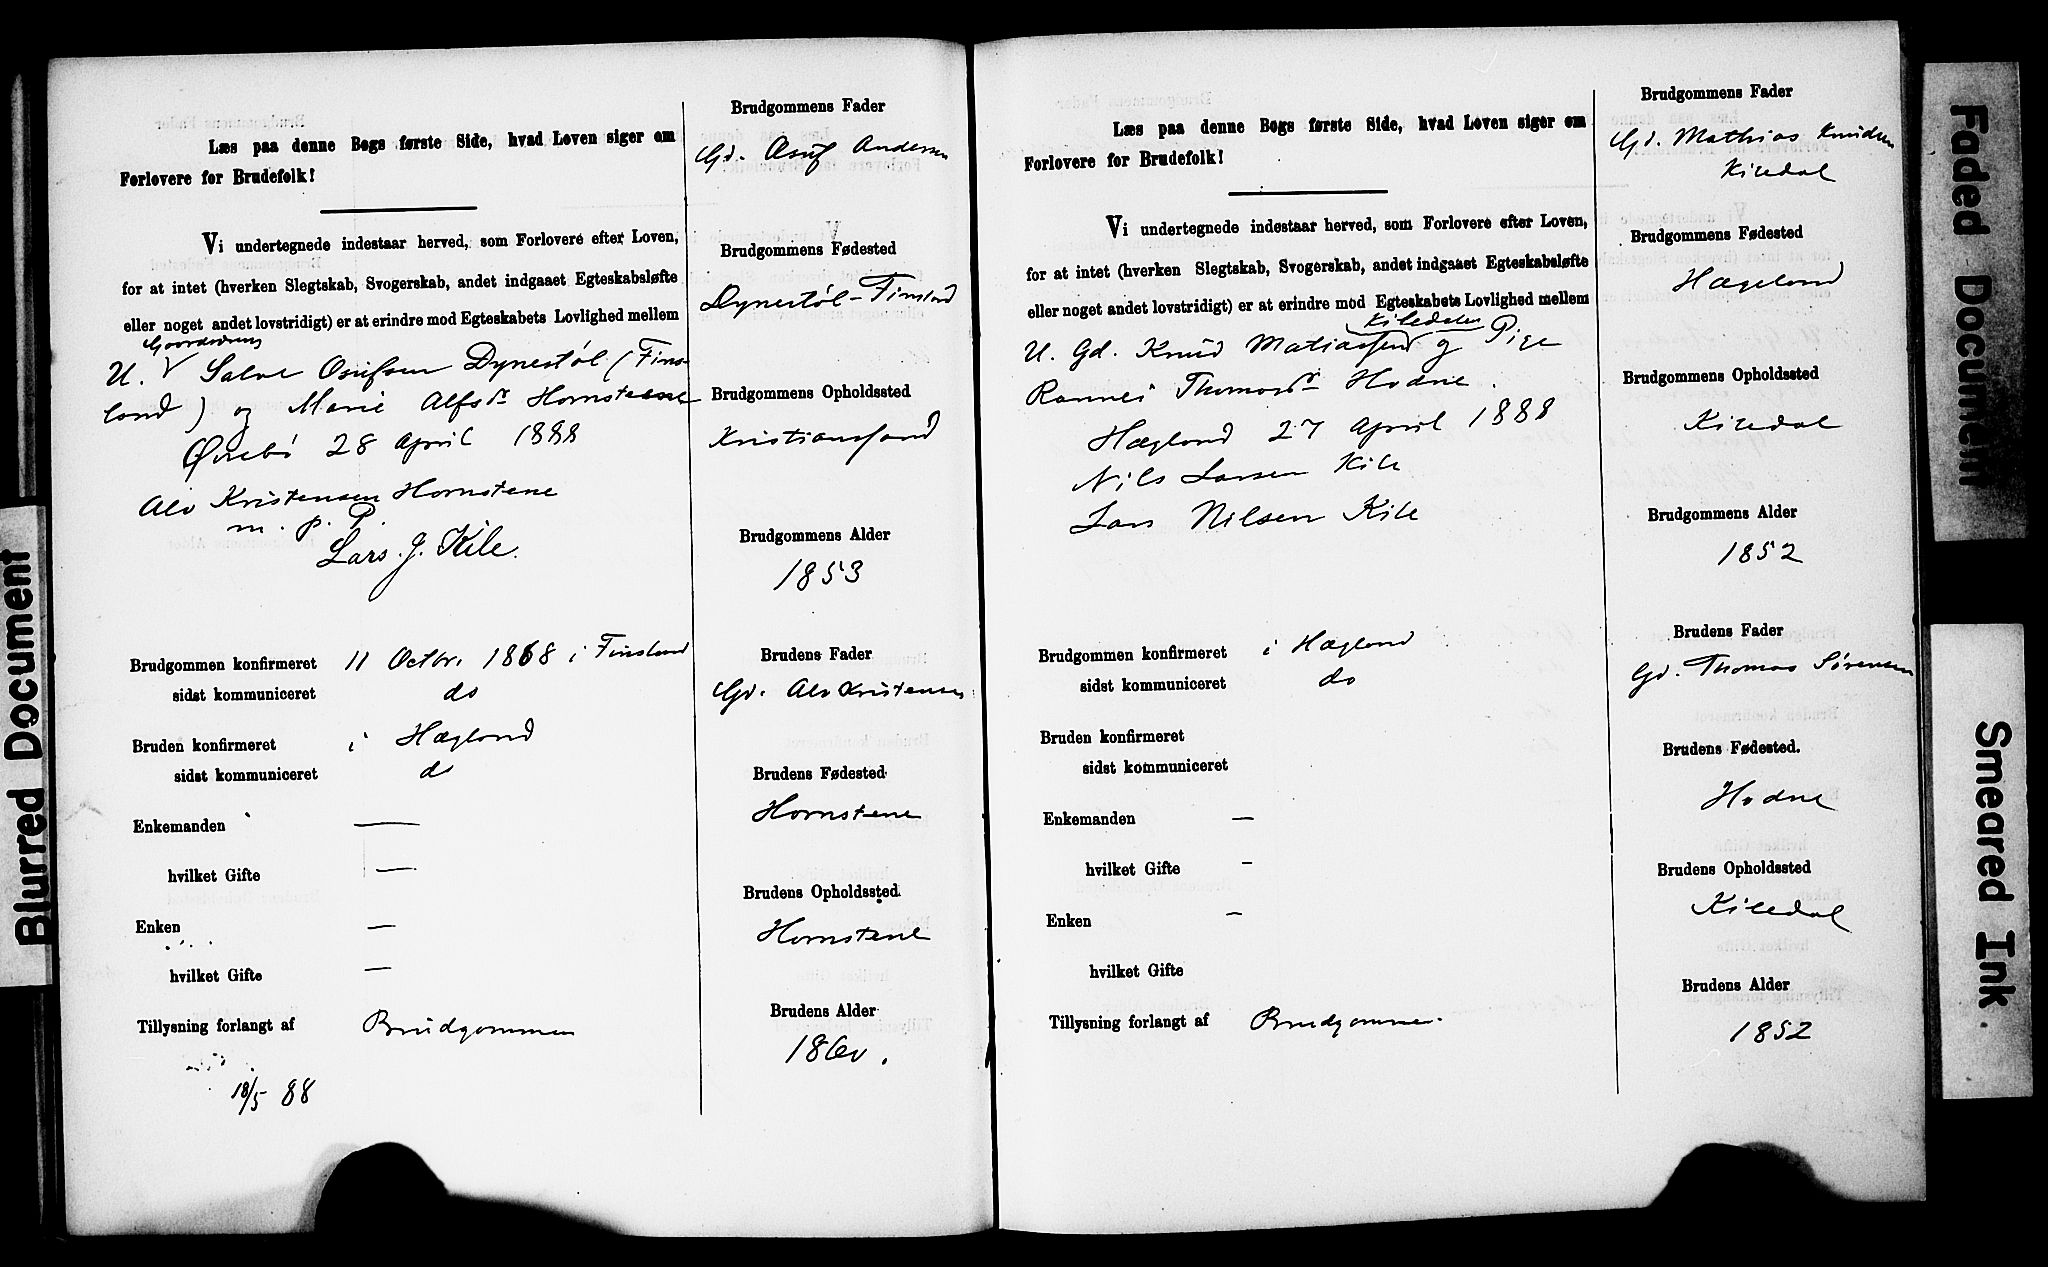 Læs paa denne Bogs første Side, hvad Loven siger om
Forlovere for Brudefolk!
Vi undertegnede indestaar herved, som Forlovere efter Loven,
for at intet (hverken Slegtskab, Svogerskab, andet indgaaet Egteskabsløfte
eller noget andet lovstridigt) er at erindre mod Egteskabets Lovlighed mellem
U. Salve Osufsen Dynestøl (Fins-
land) og Marie Alfsdr Hornstene
Øvrebø 28 April 1888
Alv Kristensen Hornstene
m. p. P.
Lars. J. Kile.
Brudgommen konfirmeret 11 Octbr. 1868 i Finsland
sidst kommuniceret do
Bruden konfirmeret i Hægland
sidst kommuniceret do
Enkemanden —
hvilket Gifte —
Enken —
hvilket Gifte —
Tillysning forlangt af Brudgommen
18/5 88
Brudgommens Fader
Gd. Osuf Andersen
Brudgommens Fødested
Dynestøl - Finsland
Brudgommens Opholdssted
Kristianssand
Brudgommens Alder
1853
Brudens Fader
Gd. Alv Kristensen
Brudens Fødested
Hornstene
Brudens Opholdssted
Hornstene
Brudens Alder
Læs paa denne Bogs første Side, hvad Loven siger om
Forlovere for Brudefolk!
Vi undertegnede indestaar herved, som Forlovere efter Loven,
for at intet (hverken Slegtskab, Svogerskab, andet indgaaet Egteskabsløfte
eller noget andet lovstridigt) er at erindre mod Egteskabets Lovlighed mellem
Kiledalen
U. Gd. Knud Matiassen og Pige
Thomasdr Hodne.
Hægland 27 April 1888
Nils Larsen Kile
Lars Nilsen Kile
Brudgommen konfirmeret i Hægland
sidst kommuniceret do
Bruden konfirmeret
sidst kommuniceret
Enkemanden —
hvilket Gifte —
Enken —
hvilket Gifte
Tillysning forlangt af Brudgommen.
Brudgommens Fader
Gd. Mathias Knudsen
Kiledal
Brudgommens Fødested
Hægeland
Brudgommens Opholdssted
Kiledal
Brudgommens Alder
1852
Brudens Fader
Gd. Thomas Sørensen
Brudens Fødested.
Hodne
Brudens Opholdssted
Kiledal
Brudens Alder
1852
Blurred Document
Faded Document
Smeared Ink